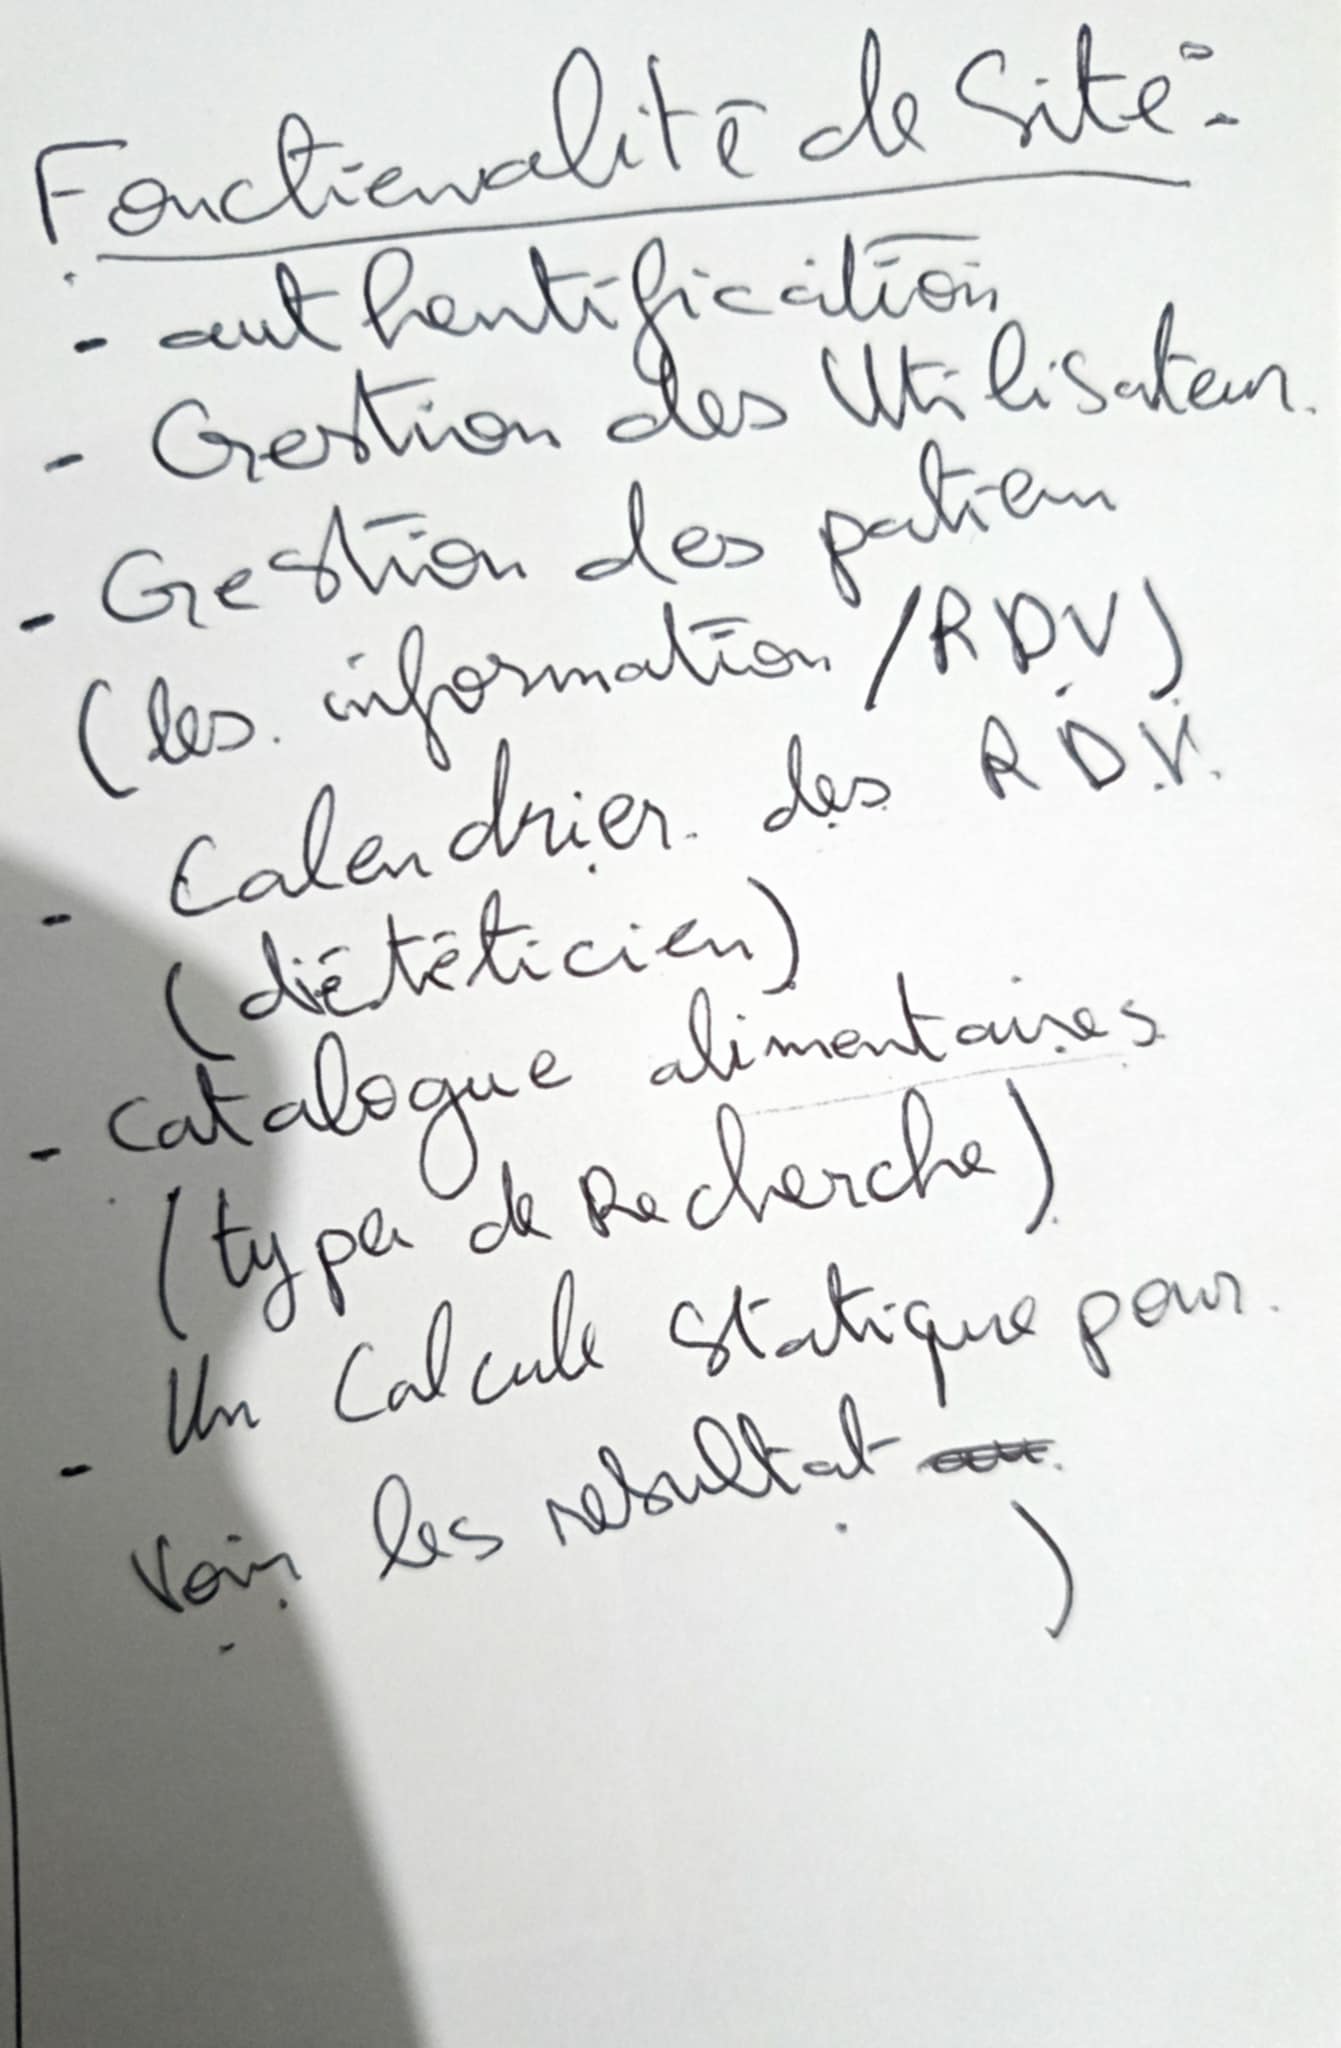 Fonctienalité de Site :
- authentification
- Gestion des Utilisateur.
- Gestion des patien
(les information / RDV)
- Calendrier des RDV
(diététicien)
- catalogue alimentaires
(type de Recherche)
- Un Calcule Statique pour
voir les resultat
)